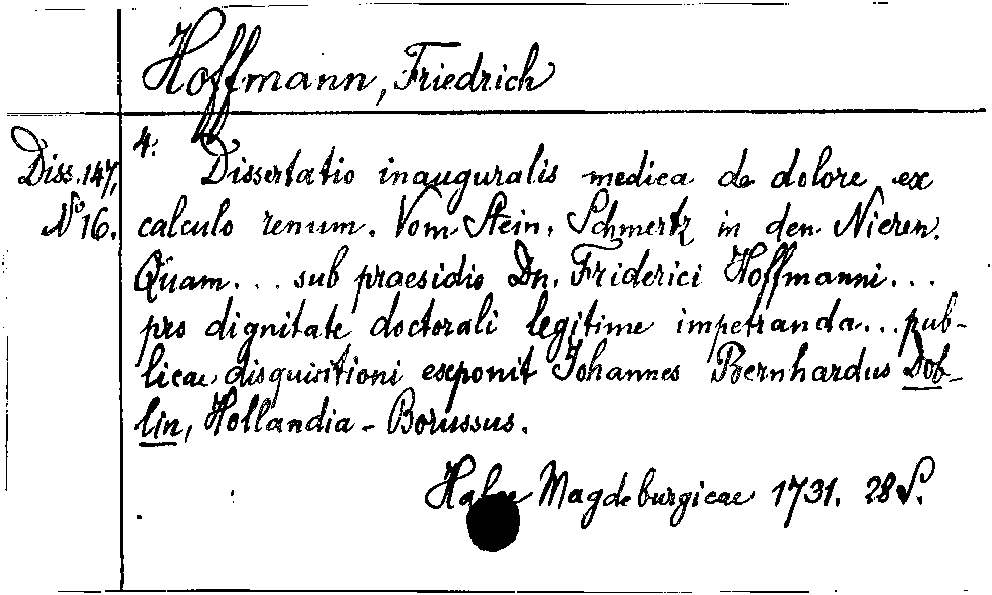 Hoffmann, Friedrich
4.
Diss. 147,
No 16.
Dissertatio inauguralis medica de dolore ex
calculo renum. Vom Stein, Schmertz in den Nieren.
Quam... sub praesidio Dn. Friderici Hoffmanni...
pro dignitate doctorali legitime impetranda... pub-
licae disquisitioni exponit Johannes Bernhardus Dob-
lin, Hollandia-Borussus.
Halae Magdeburgicae 1731. 28 S.